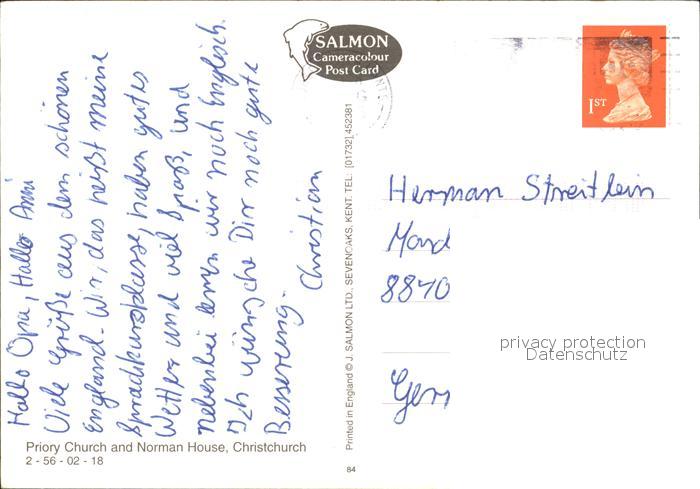 Hallo Opa, Hallo Ami
Viele Grüße aus dem schönen
England. Wir, das heißt meine
Sprachkursklasse, haben gutes
Wetter und viel Spaß, und
nebenbei lernen wir noch Englisch.
Ich wünsche Dir noch gute
Besserung.
Christian
SALMON
Cameracolour
Post Card
1ST
Printed in England © J. SALMON LTD., SEVENOAKS, KENT. TEL: (01732) 452381
Herman Streitlein
Mard
8840
Gers
privacy protection
Datenschutz
Priory Church and Norman House, Christchurch
2 - 56 - 02 - 18
84